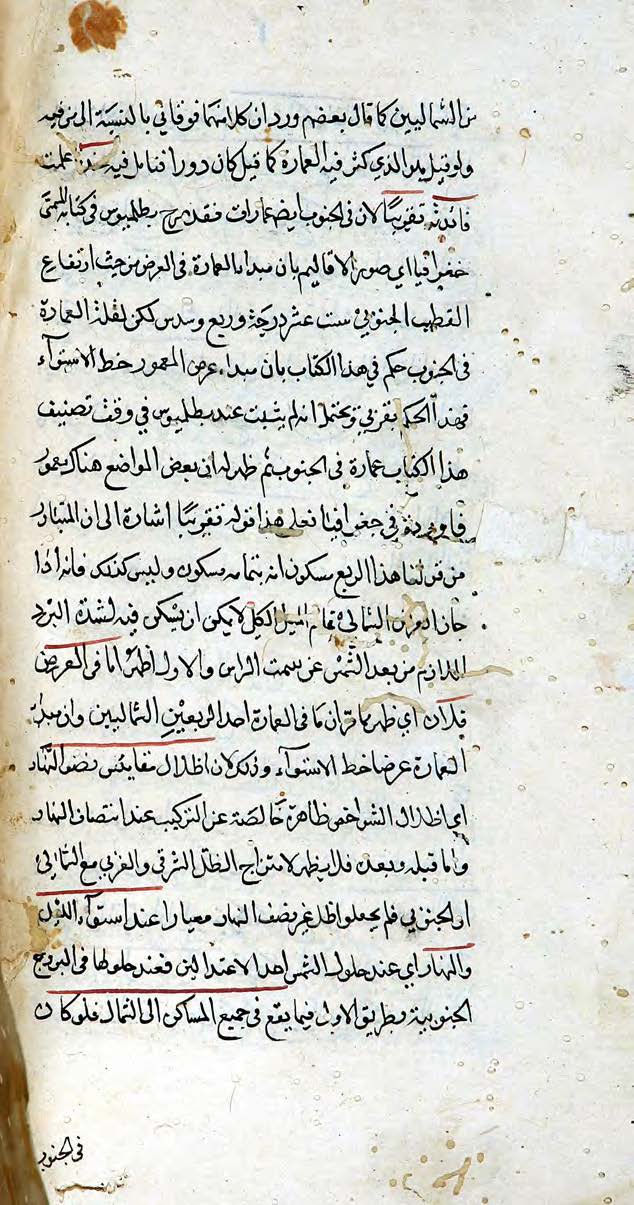 من الشماليين كما قال بعضهم ورد ان كلا منهما فوقاني بالنسبة الى من فيه
ولو قيل بدل الذي كثر فيه العمارة كما قيل كان دورا فتامل فيه علمت
فائدته تقريبا لان في الجنوب ايضا عمارات فقد صرح بطلميوس في كتابه المسمى
جغرافيا اي صور الاقاليم بان مبدا العمارة في العرض من حيث ارتفاع
القطب الجنوبي ست عشر درجة وربع وسدس لكن لقلة العمارة
في الجنوب حكم في هذا الكتاب بان مبداء عرض المعمور خط الاستوآء
فهذا الحكم تقريبي ويحتمل انه لم يثبت عند بطلميوس في وقت تصنيف
هذا الكتاب عمارة في الجنوب ثم ظهر له ان بعض المواضع هناك معمور
فاورده في جغرافيا فعلى هذا قوله تقريبا اشارة الى ان المتبادر
من قولنا هذا الربع مسكون انه بتمامه مسكون وليس كذلك فانه اذا
جاز العرض الشمالي تمام الميل الكل لا يمكن ان يسكن فيه لشدة البرد
اللازم من بعد الشمس عن سمت الراس والاول اظهر اما في العرض
فلان اي ظهر ما قر ان ما في العمارة احد الربعين الشماليين وان مبدأ
العمارة عرضا خط الاستوآء وذلك لان اظلال مقاييس نصف النهار
اي اظلال الشواخص ظاهرة خالصة عن التركيب عند انتصاف النهار
واما قبله وبعده فلا يظهر لامتزاج الظل الشرقي والغربي مع الشمالي
او الجنوبي فلم يجعلوا ظل غير نصف النهار معيارا عند استوآء الليل
والنهار اي عند حلول الشمس احد الاعتدالين فعند حلولها في البروج
الجنوبية وطريق الاول فيما يقع في جميع المساكن الى الشمال فلو كان
في الجنوب